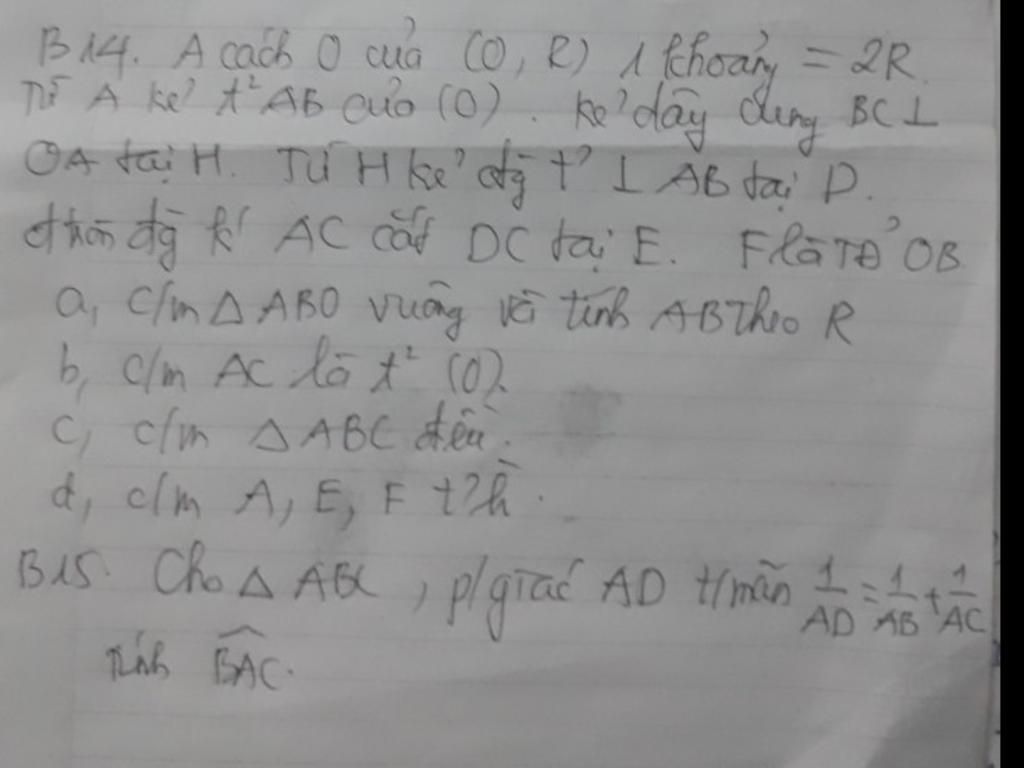 B14. A cách O của (O, R) 1 khoảng = 2R.
Từ A kẻ t² AB của (O). Kẻ dây cung BC ⊥
OA tại H. Từ H kẻ đg̀ t̉ ⊥ AB tại D.
đg̀ kí AC cắt DC tại E. F là TĐ̉ OB
a, c/m △ ABO vuông và tính AB theo R
b, c/m AC là t² (O).
c, c/m △ ABC đều.
d, c/m A, E, F t̉ h̀.
B15. Cho △ ABC, p/giác AD t/mãn 1/AD = 1/AB + 1/AC
Tính \widehat{BAC}.